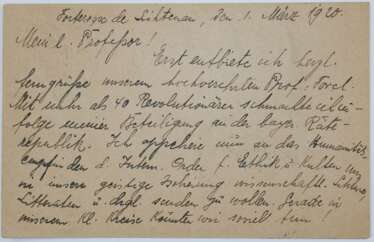 Forteresse de Lichtenau, den 1. März 1920.
Mein l. Professor!
Erst entbiete ich herzl.
Ferngrüße unserem hochverehrten Prof. Forel.
Mit mehr als 40 Revolutionären schmachte ich in-
folge meiner Beteiligung an der bayer. Räte-
republik. Ich appeliere nun an das Humanitäts-
empfinden d. Intern. Orden f. Ethik u. Kultur, uns
in unsere geistige wissenschaftl. Lektüre,
Litteraten u. drgl. senden zu wollen. Gerade in
unserem kl. Kreise könnten wir soviel tun!